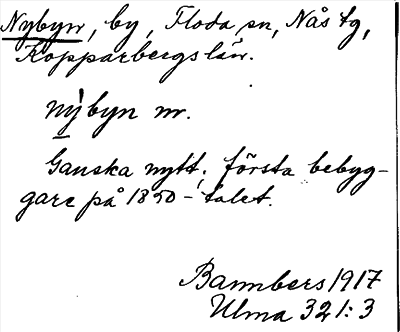 Nybyn, by, Floda sn, Nås tg,
Kopparbergs län.
nỳbyn nr.
Ganska nytt; första bebyg-
gare på 1850-talet.
Bannbers 1917
Ulma 321:3